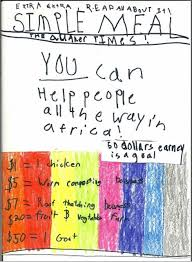 EXTRA EXTRA READ ALL ABOUT IT!
SIMPLE MEAL
THE QUAKER TIMES!
YOU Can
Help people
all the way in
africa!
50 dollars earned
is a goal
$1 = 1 chicken
$5 = Worm composting
$7 = Roof thatching
$20 = fruit & vegetable
$50 = 1 Goat